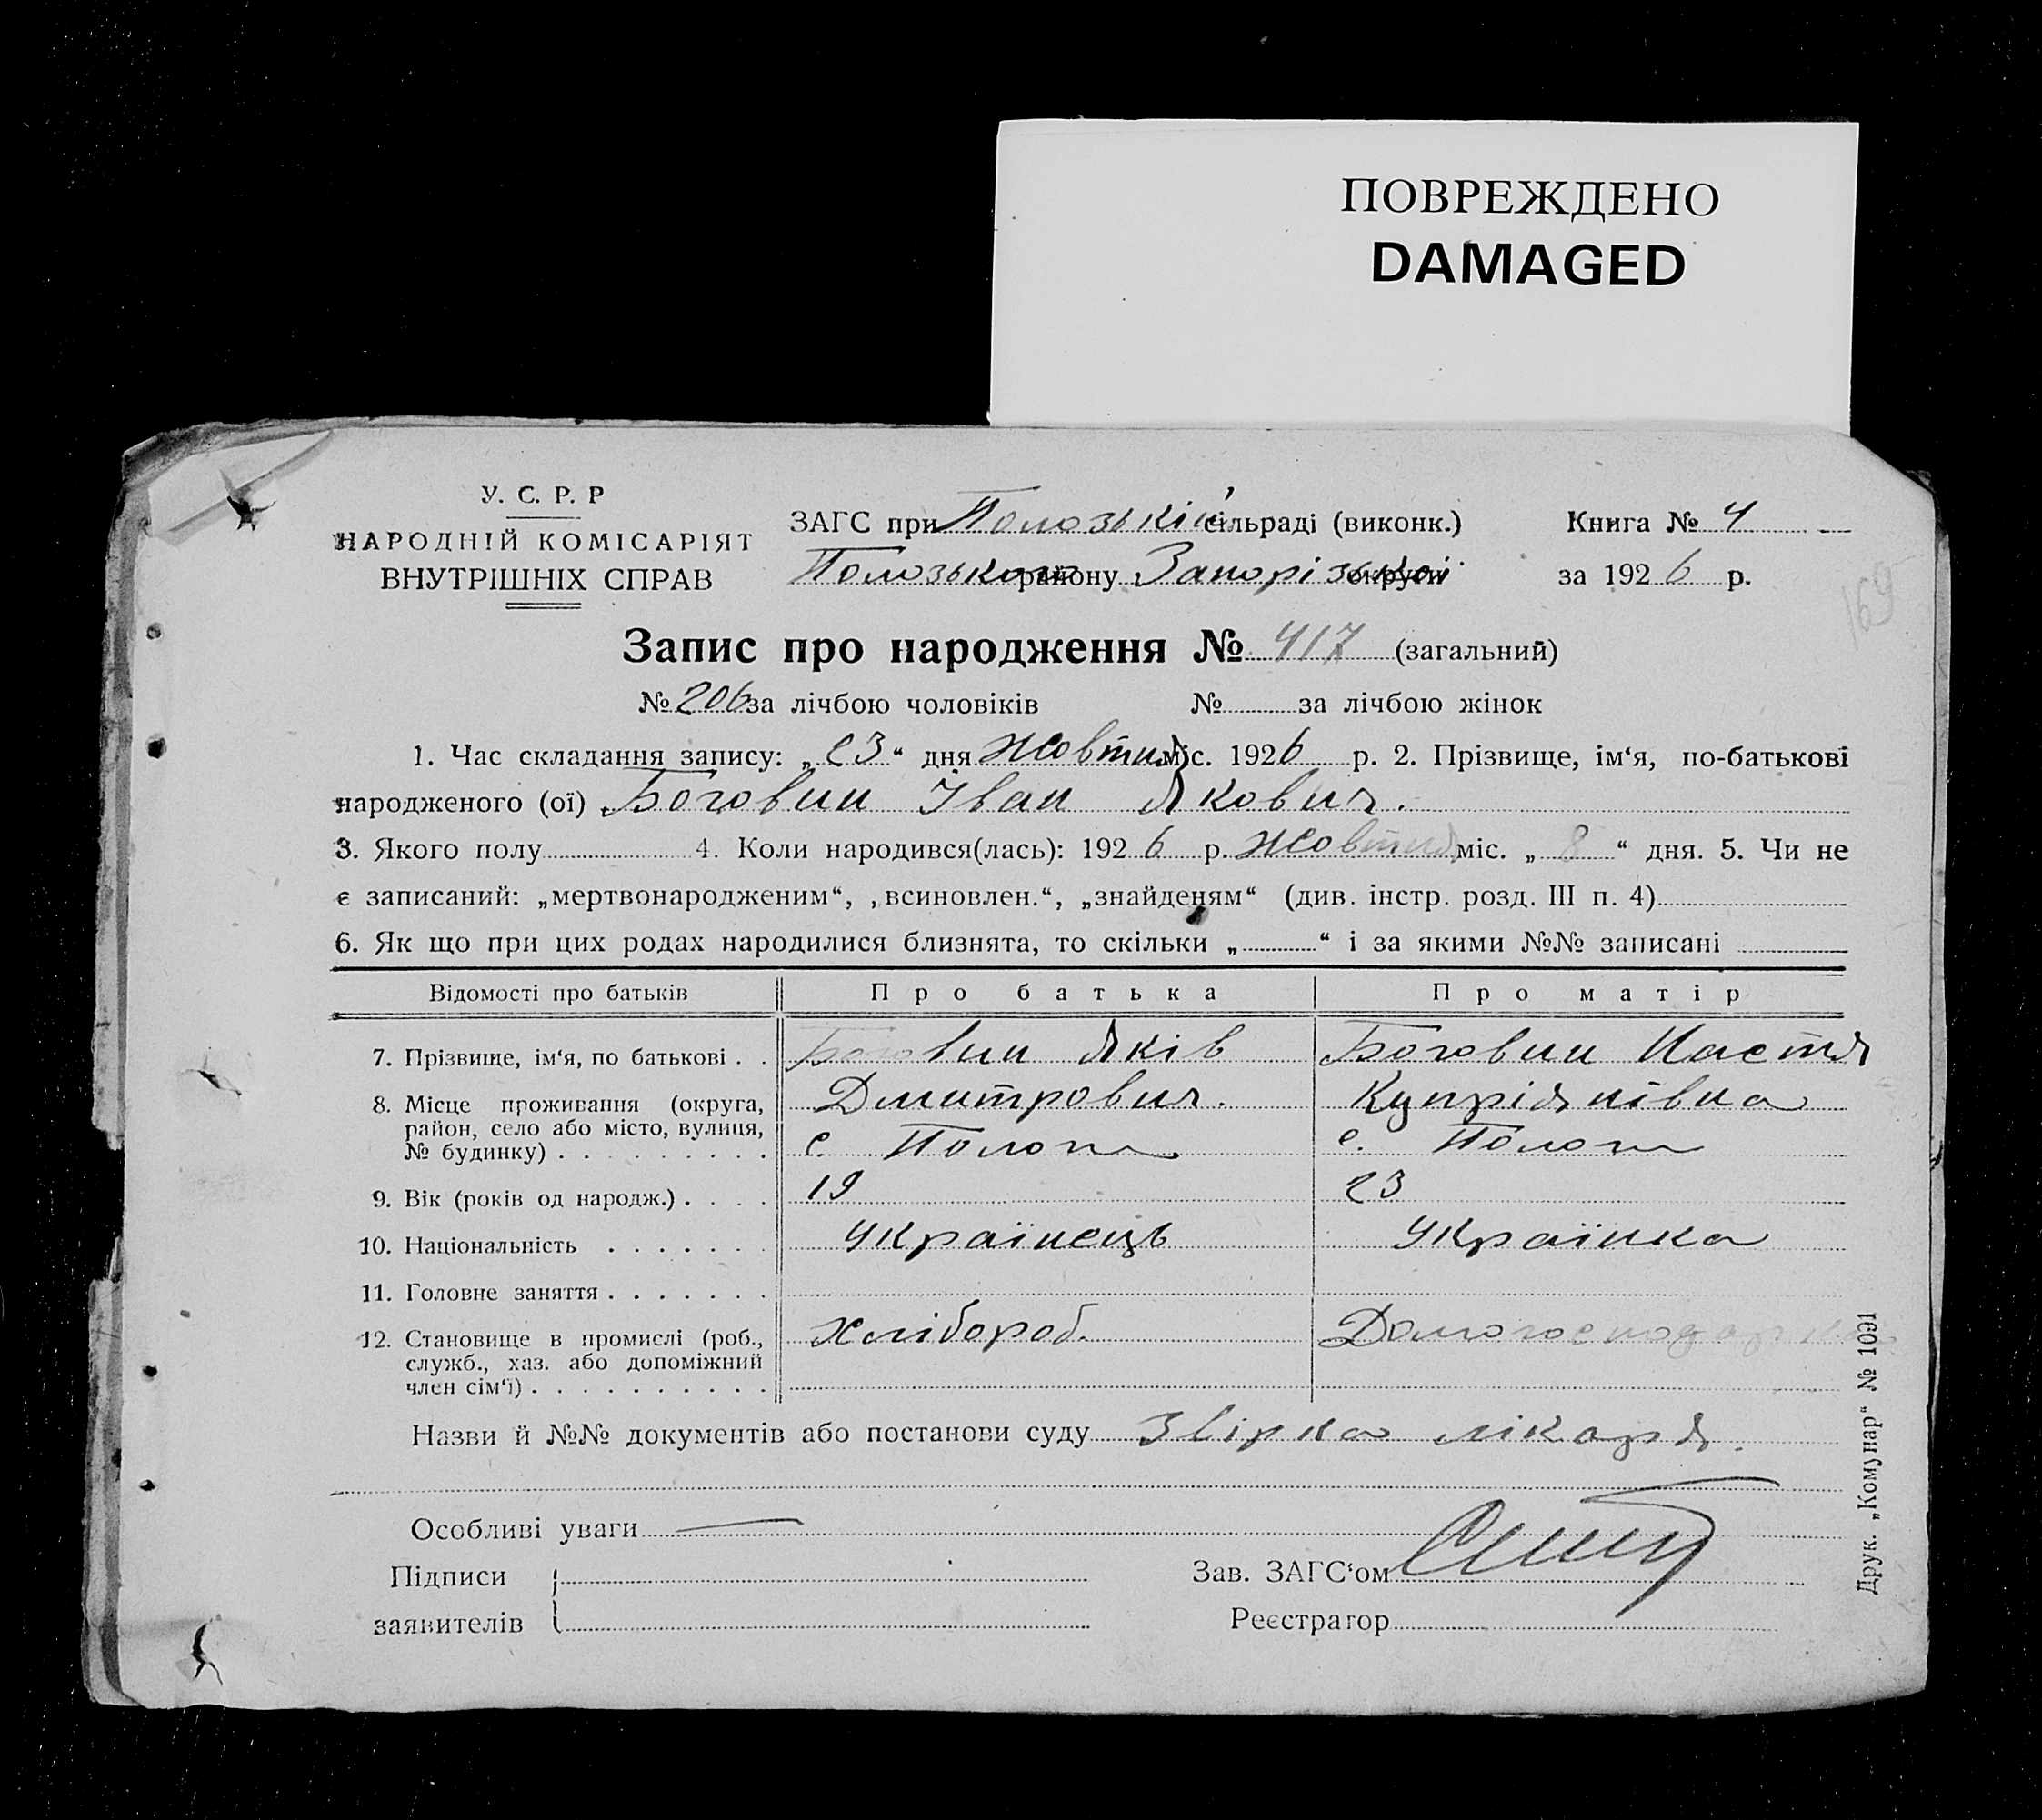 ПОВРЕЖДЕНО
DAMAGED
У. С. Р. Р
НАРОДНІЙ КОМІСАРІЯТ
ВНУТРІШНІХ СПРАВ
ЗАГС при Полозькій сільраді (виконк.) Книга № 4
Полозького району Запорізької округи за 1926 р.
169
Запис про народження № 417 (загальний)
№ 206 за лічбою чоловіків № за лічбою жінок
1. Час складання запису: „23“ дня Жовтня міс. 1926 р. 2. Прізвище, ім‘я, по-батькові
народженого (ої) Боговин Іван Якович.
3. Якого полу 4. Коли народився(лась): 1926 р. Жовтня міс. „8“ дня. 5. Чи не
є записаний: „мертвонародженим“, „всиновлен.“, „знайденям“ (див. інстр. розд. III п. 4)
6. Як що при цих родах народилися близнята, то скільки „ “ і за якими №№ записані
Відомості про батьків Про батька Про матір
7. Прізвище, ім‘я, по батькові . . Боговин Яків Боговин Настя
Дмитрович. Купріянівна
8. Місце проживання (округа,
район, село або місто, вулиця,
№ будинку) . . . . . . . . . с. Пологи с. Пологи
9. Вік (років од народж.) . . . . 19 23
10. Національність . . . . . . . Українець Українка
11. Головне заняття . . . . . . .
12. Становище в промислі (роб., Хлібороб. Домогосподарка
служб., хаз. або допоміжний
член сім‘ї) . . . . . . . . . .
Назви й №№ документів або постанови суду Звірка лікаря.
Особливі уваги —
Підписи
заявителів
Зав. ЗАГС‘ом
Реєстратор
Друк. „Комунар“ № 1091